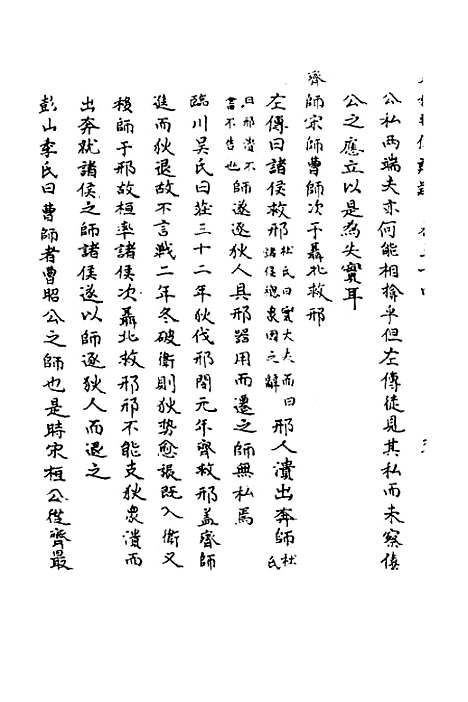 公私兩端夫亦何能相揜乎但左傳徒見其私而未察僖
公之應立以是為失實耳
齊師宋師曹師次于聶北救邢
左傳曰諸侯救邢杜氏曰實大夫而曰諸侯總衆國之辭邢人潰出奔師杜氏
曰邢潰不書不告也師遂逐狄人具邢器用而遷之師無私焉
臨川吳氏曰莊三十二年狄伐邢閔元年齊救邢蓋齊師
進而狄退故不言戰二年冬破衛則狄勢愈張既入衛又
移師于邢故桓率諸侯次聶北救邢邢不能支狄衆潰而
出奔就諸侯之師諸侯遂以師逐狄人而遷之
彭山李氏曰曹師者曹昭公之師也是時宋桓公從齊最